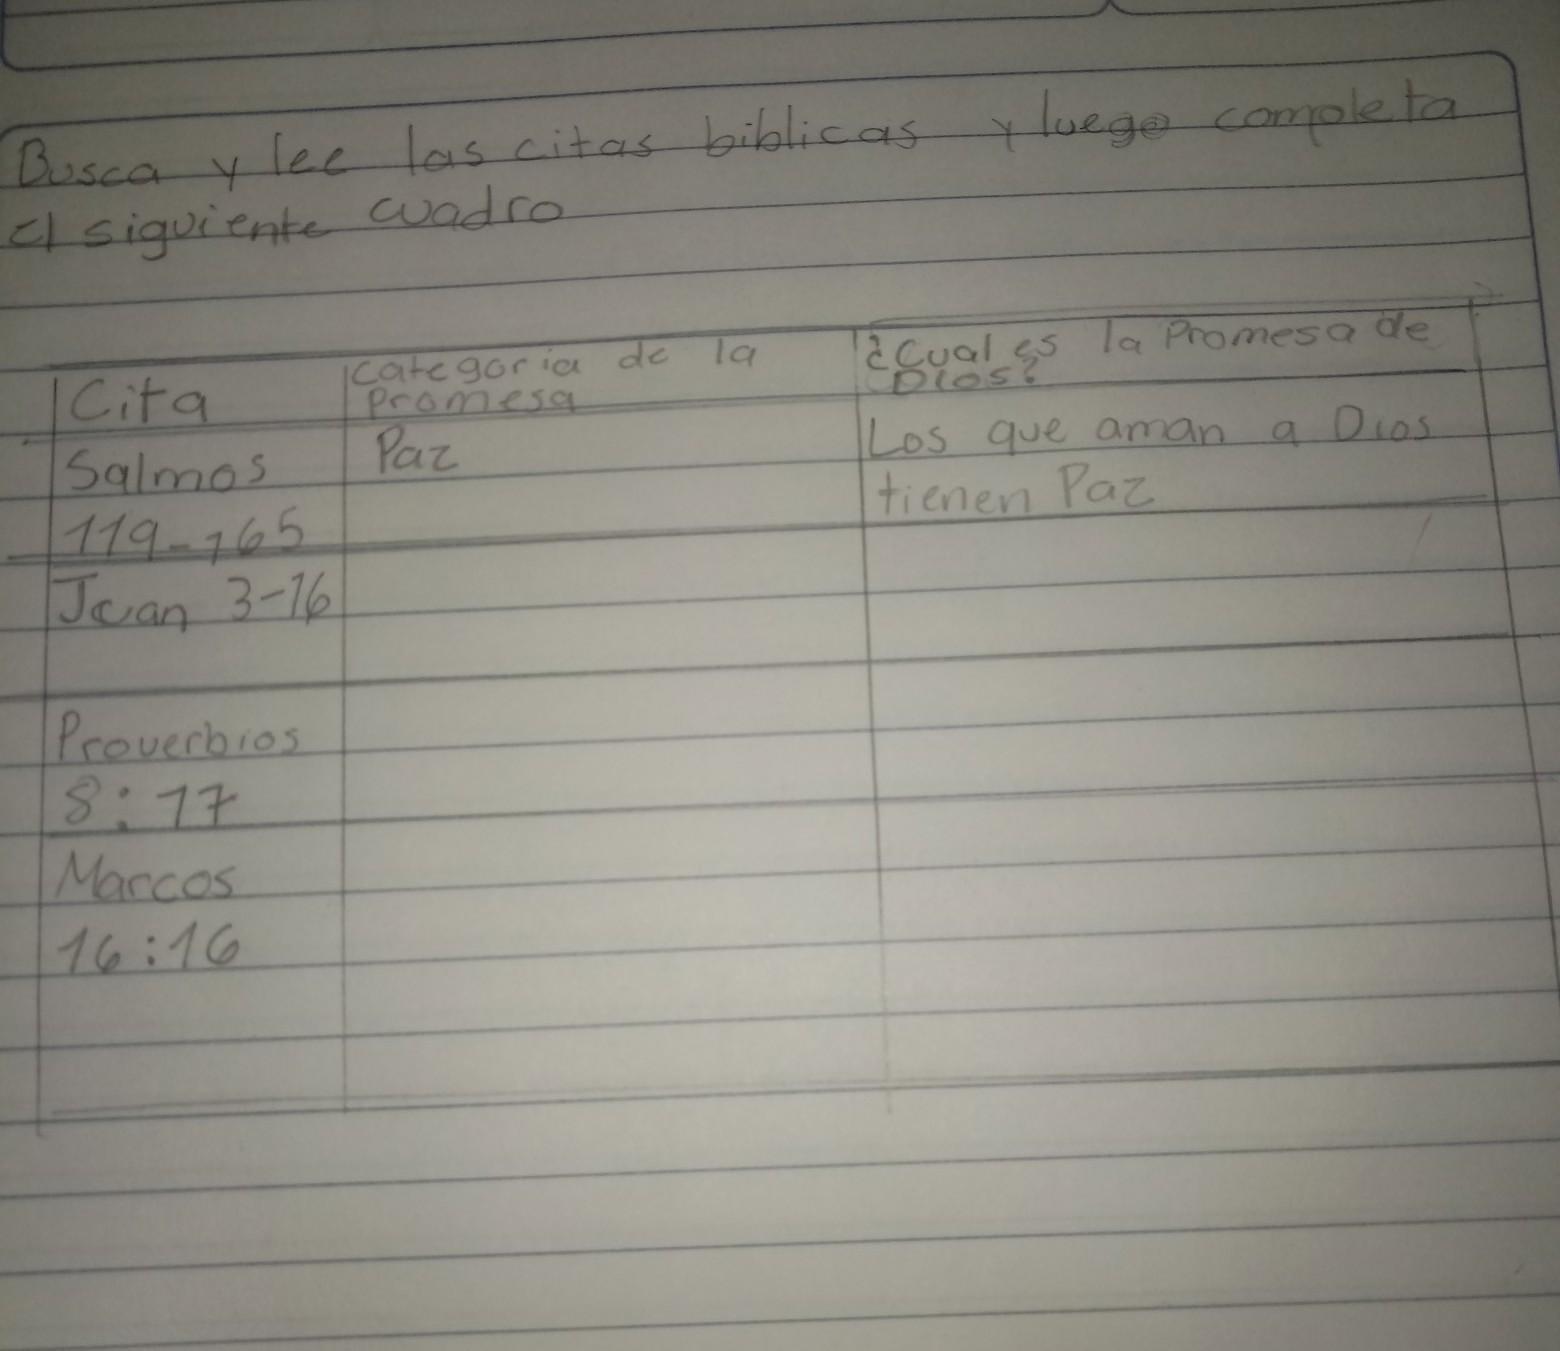 Busca y lee las citas biblicas y luego completa
el siguiente cuadro
Cita
categoria de la
promesa
¿Cual es la Promesa de
Dios?
Salmos
119-165
Paz
Los que aman a Dios
tienen Paz
Juan 3-16
Proverbios
8:17
Marcos
16:16